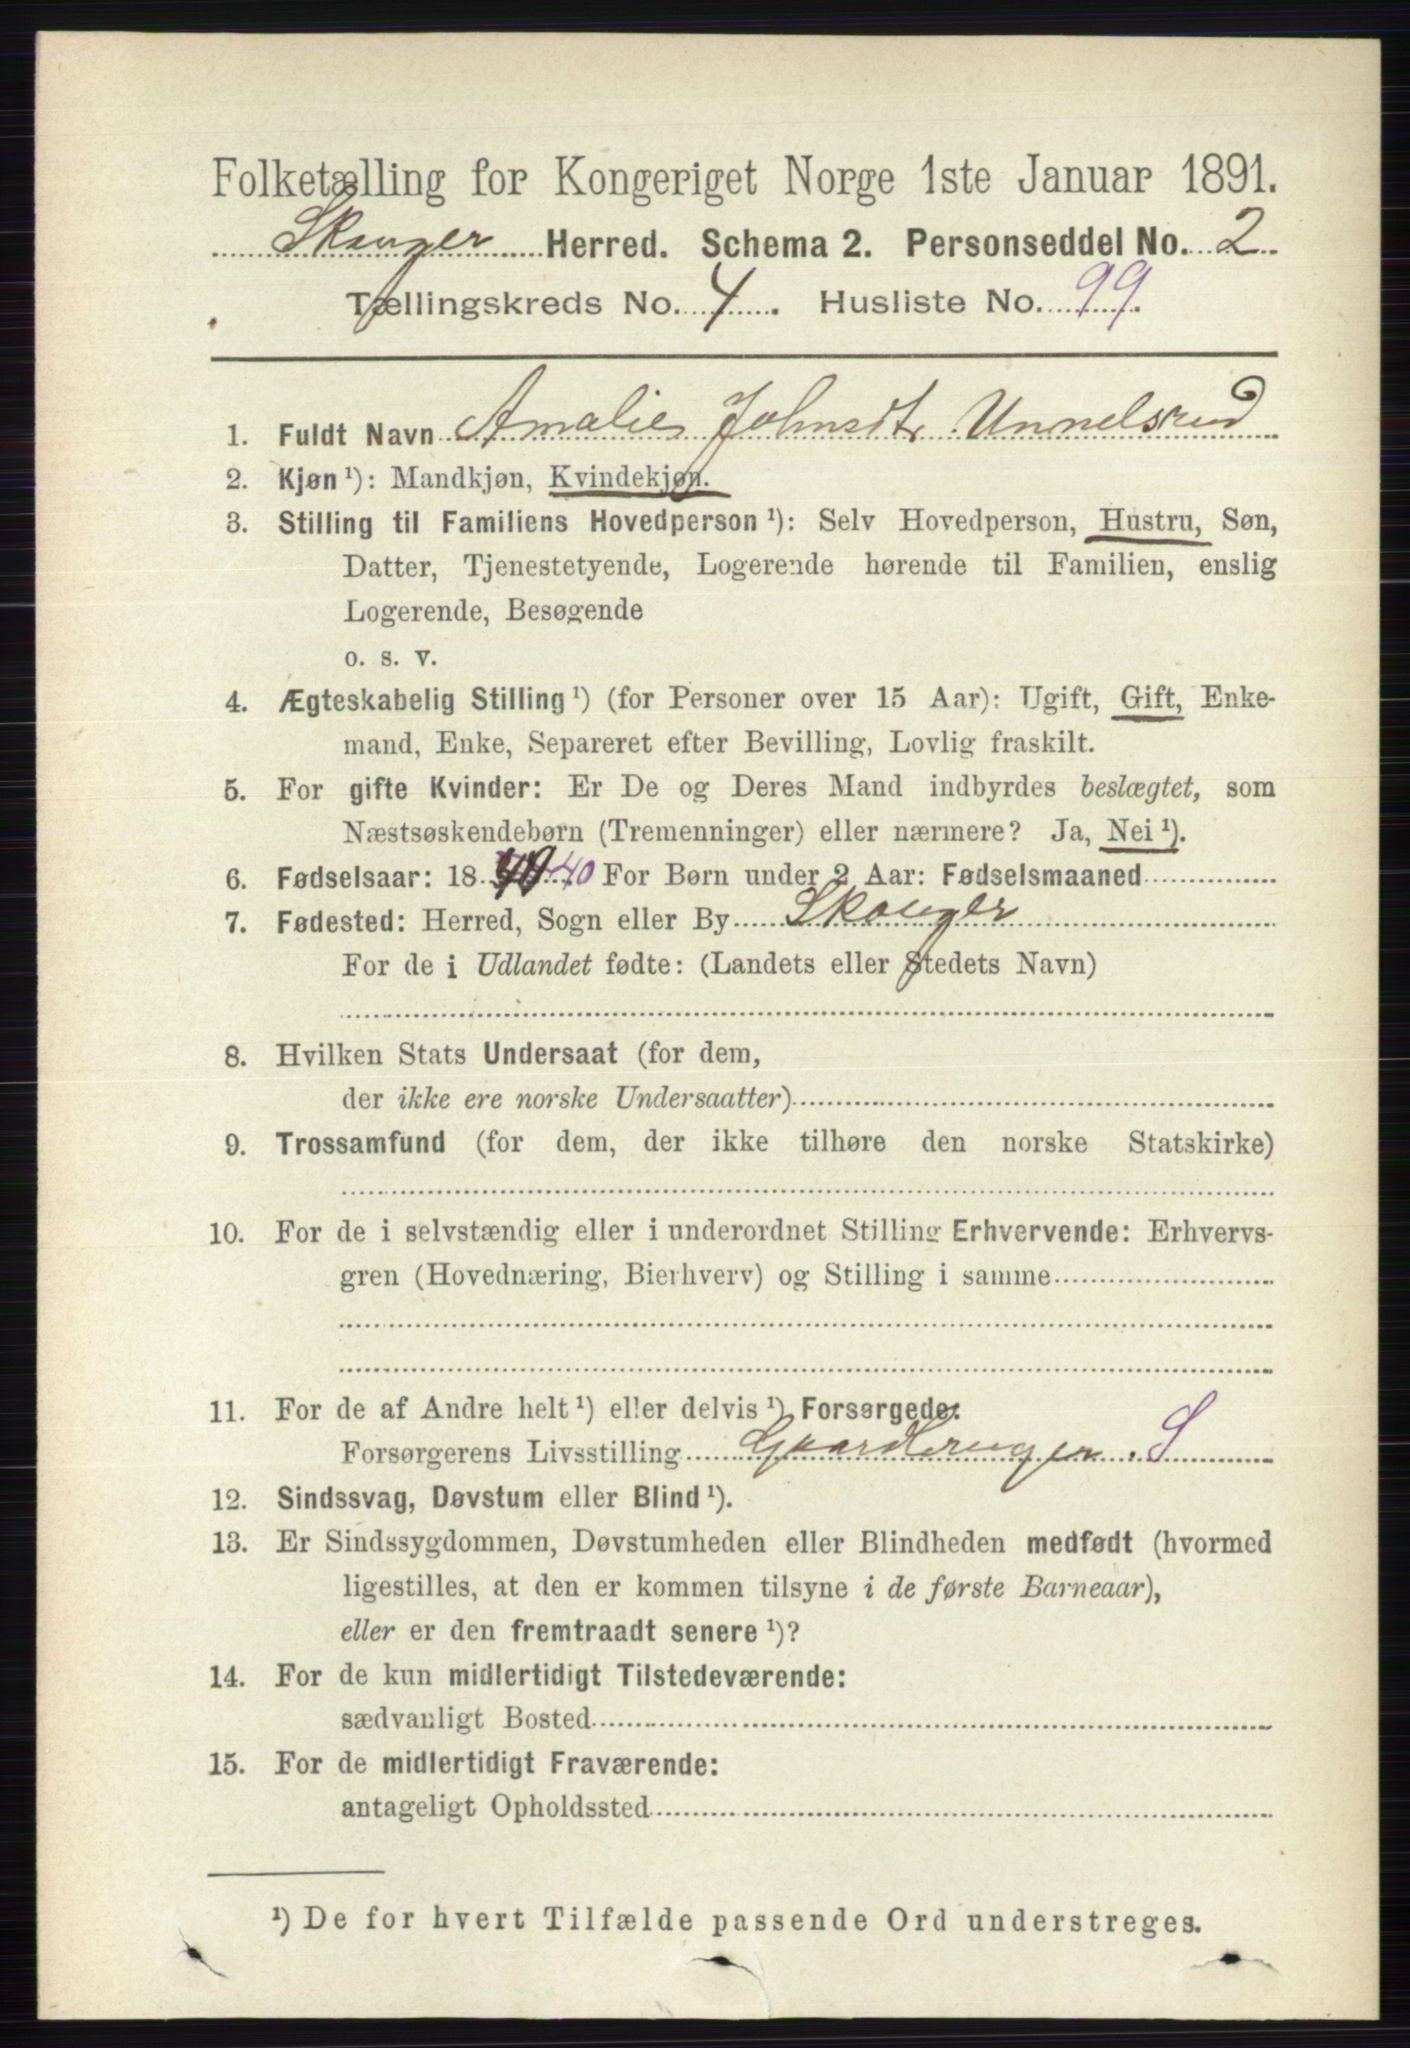 Folketælling for Kongeriget Norge 1ste Januar 1891.
Skouger Herred. Schema 2. Personseddel No. 2
Tællingskreds No. 4. Husliste No. 99.
1. Fuldt Navn Amalie Johnsdtr Unnelsrud
2. Kjøn ¹): Mandkjøn, Kvindekjøn.
3. Stilling til Familiens Hovedperson ¹): Selv Hovedperson, Hustru, Søn,
Datter, Tjenestetyende, Logerende hørende til Familien, enslig
Logerende, Besøgende
o. s. v.
4. Ægteskabelig Stilling ¹) (for Personer over 15 Aar): Ugift, Gift, Enke-
mand, Enke, Separeret efter Bevilling, Lovlig fraskilt.
5. For gifte Kvinder: Er De og Deres Mand indbyrdes beslægtet, som
Næstsøskendebørn (Tremenninger) eller nærmere? Ja, Nei ¹).
6. Fødselsaar: 18 40 For Børn under 2 Aar: Fødselsmaaned
7. Fødested: Herred, Sogn eller By Skouger
For de i Udlandet fødte: (Landets eller Stedets Navn)
8. Hvilken Stats Undersaat (for dem,
der ikke ere norske Undersaatter)
9. Trossamfund (for dem, der ikke tilhøre den norske Statskirke)
10. For de i selvstændig eller i underordnet Stilling Erhvervende: Erhvervs-
gren (Hovednæring, Bierhverv) og Stilling i samme
11. For de af Andre helt ¹) eller delvis ¹) Forsørgede:
Forsørgerens Livsstilling Gaardbruger. S
12. Sindssvag, Døvstum eller Blind ¹).
13. Er Sindssygdommen, Døvstumheden eller Blindheden medfødt (hvormed
ligestilles, at den er kommen tilsyne i de første Barneaar),
eller er den fremtraadt senere ¹)?
14. For de kun midlertidigt Tilstedeværende:
sædvanligt Bosted
15. For de midlertidigt Fraværende:
antageligt Opholdssted
¹) De for hvert Tilfælde passende Ord understreges.